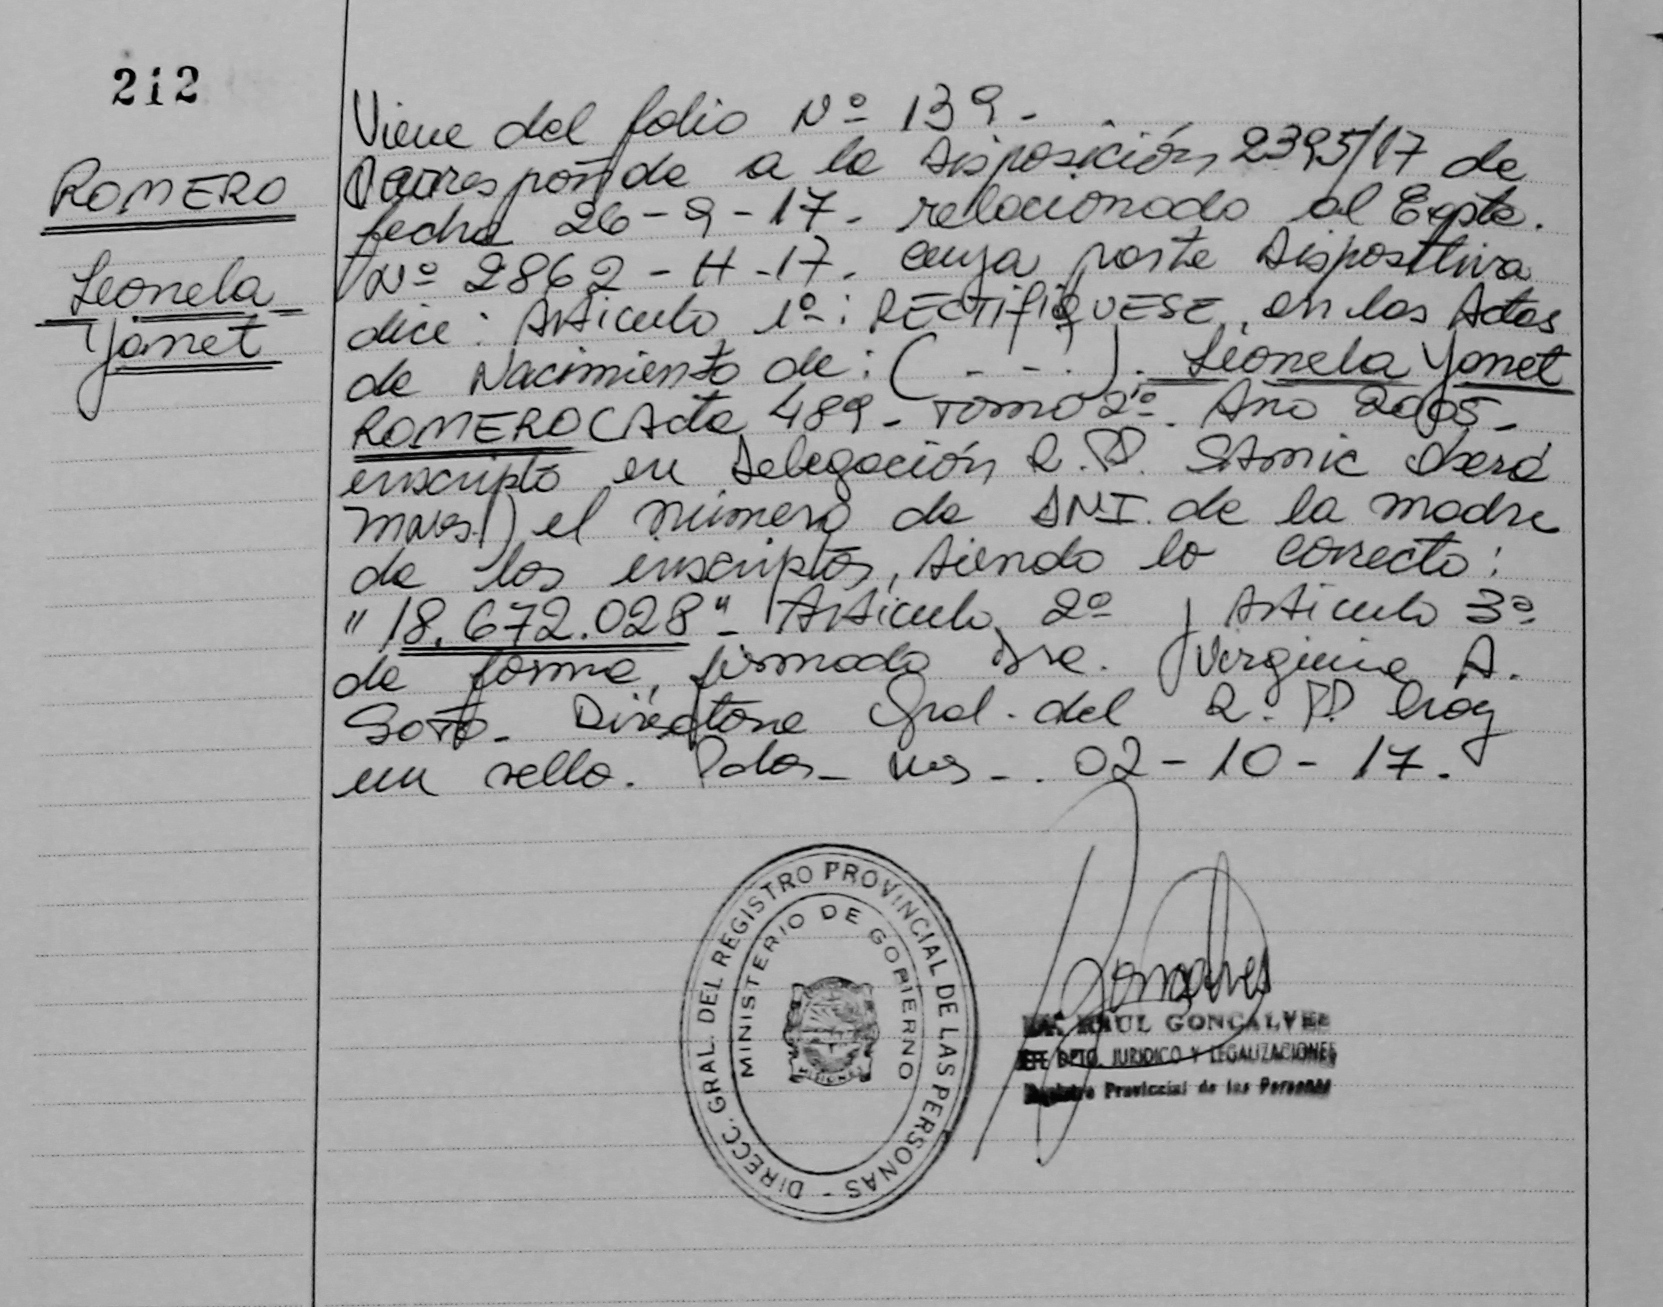 212
ROMERO
Leonela
Yanet
Viene del folio Nº 139-
Corresponde a la Disposición 2395/17 de
fecha 26-9-17. relacionado al Expte.
Nº 2862-H-17. cuya parte Dispositiva
dice: Articulo 1º: RECTIFIQUESE, en las Actas
de Nacimiento de: (- - -). Leonela Yanet
ROMERO (Acta 489- Tomo 2º- Año 2005-
inscripto en Delegación R.P.P. Sármic Oberá
Mnes.) el número de DNI. de la madre
de los inscriptos, siendo lo correcto:
"18.672.028"- Articulo 2º y Articulo 3º
de forma, firmado Dra. Virginia A.
SOTO- Directora Gral. del R.P.P. Hay
un sello. Pdas- Mnes-. 02-10-17.
DIRECC. GRAL. DEL REGISTRO PROVINCIAL DE LAS PERSONAS -
MINISTERIO DE GOBIERNO
MISIONES
RAUL GONCALVES
JEFE DPTO. JURIDICO Y LEGALIZACIONES
Registro Provincial de las Personas